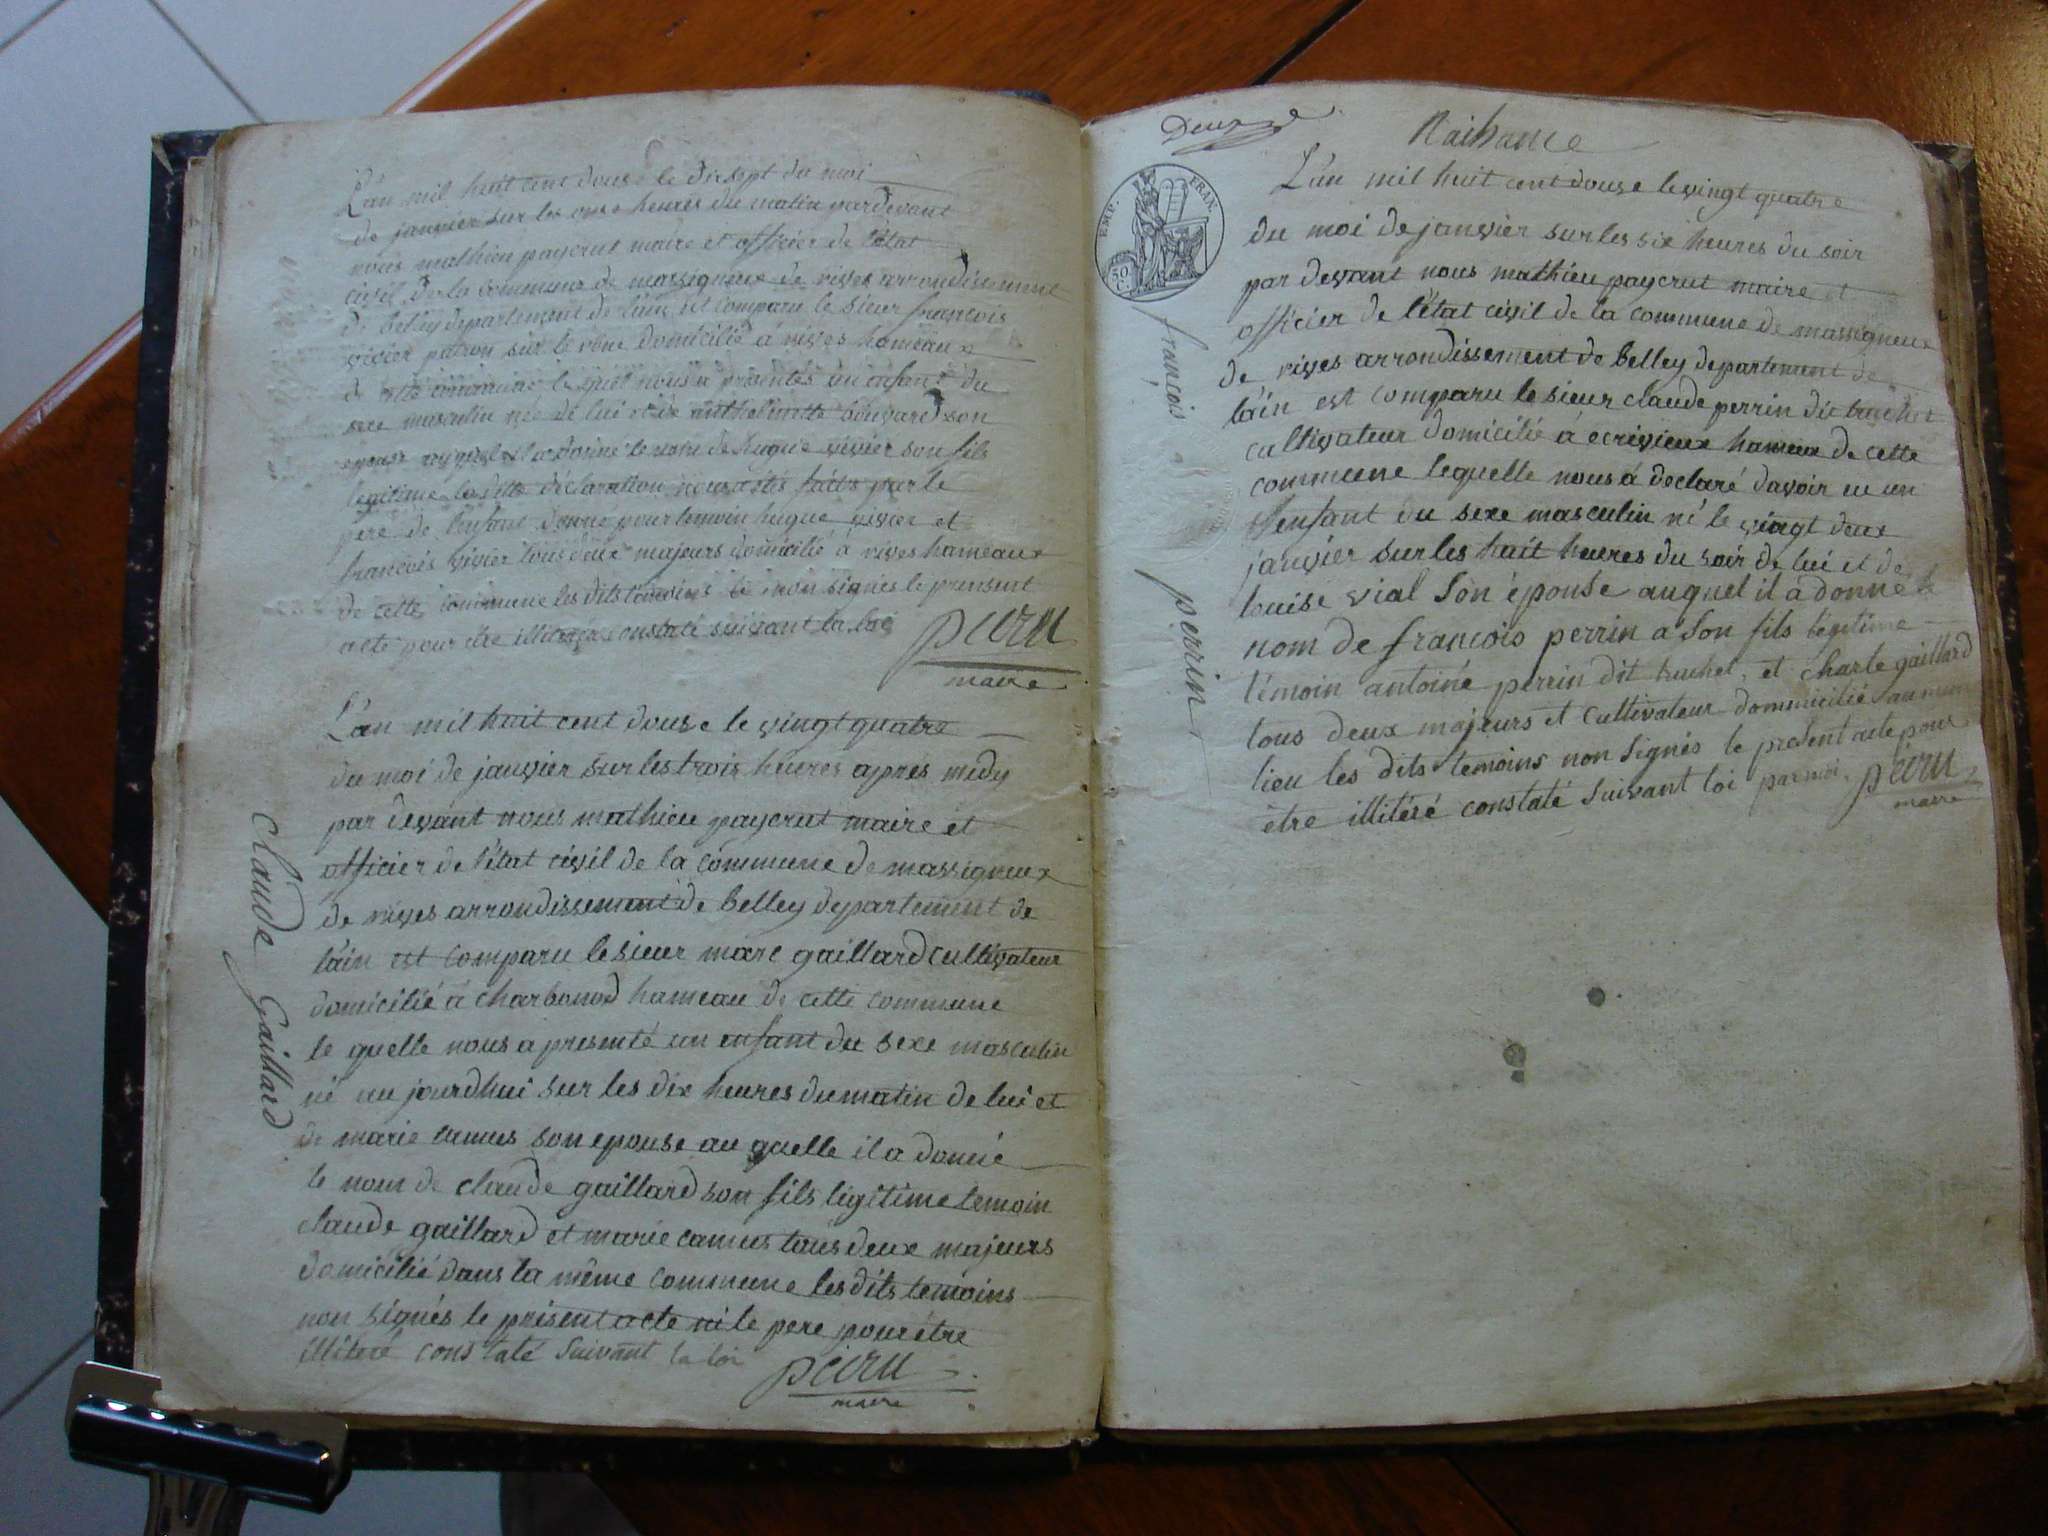 L'an mil huit cent douse le dix sept du moi
de janvier sur les onse heures du matin pardevant
nous mathieu paycrut maire et officier de l'état
civil de la commune de massigneux de rives arrondissement
de belley departement de l'ain est comparu le sieur françois
vivier patron sur le rône domicilié á rives hameaux
de cette commune le quel nous a presentés un enfant du
sexe masculin née de lui et de anthelmette bouvard son
epouse auquel il a donné le nom de hugue vivier son fils
legitime la ditte déclaration nous a étés faits par le
pere de l'enfant donné pour temoin hugue vivier et
françois vivier tous deux majeurs domicilié à rives hameaux
de cette commune les dits temoins non signés le prensent
acte pour être illiteré constaté suivant la loi
peiru
maire
L'an mil huit cent douse le vingt quatre
du moi de janvier sur les trois heures apres midy
par devant nous mathieu paycrut maire et
officier de l'état civil de la commune de massigneux
de rives arrondissement de belley departement de
l'ain est comparu le sieur marc gaillard cultivateur
domicilié á charbonod hameau de cette commune
le quelle nous a presenté un enfant du sexe masculin
né au jourdhui sur les dix heures du matin de lui et
de marie camus son epouse au quelle il a donné
le nom de claude gaillard son fils legitime temoin
claude gaillard et marie camus tous deux majeurs
domicilié dans la même commune les dits temoins
non signés le prisent acte ni le pere pour être
illiteré constaté suivant la loi
peiru
maire
claude Gaillard
Deux
Naihance
EMP. FRAN.
50 C.
L'an mil huit cent douse le vingt quatre
du moi de janvier sur les six heures du soir
par devant nous mathieu paycrut maire et
officier de l'état civil de la commune de massigneux
de rives arrondissement de belley departement de
l'ain est comparu le sieur claude perrin dit truchet
cultivateur domicilié á ecrivieux hameux de cette
commune lequelle nous á declaré davoir eu un
enfant du sexe masculin né le vingt deux
janvier sur les huit heures du soir de lui et de
louise vial son épouse auquel il a donné le
nom de françois perrin a son fils légitime
témoin antoine perrin dit truchet, et charle gaillard
tous deux majeurs et cultivateur dommicilié au
lieu les dits temoins non signés le present acte pour
être illiteré constaté suivant loi par moi. peiru
maire
françois perrin